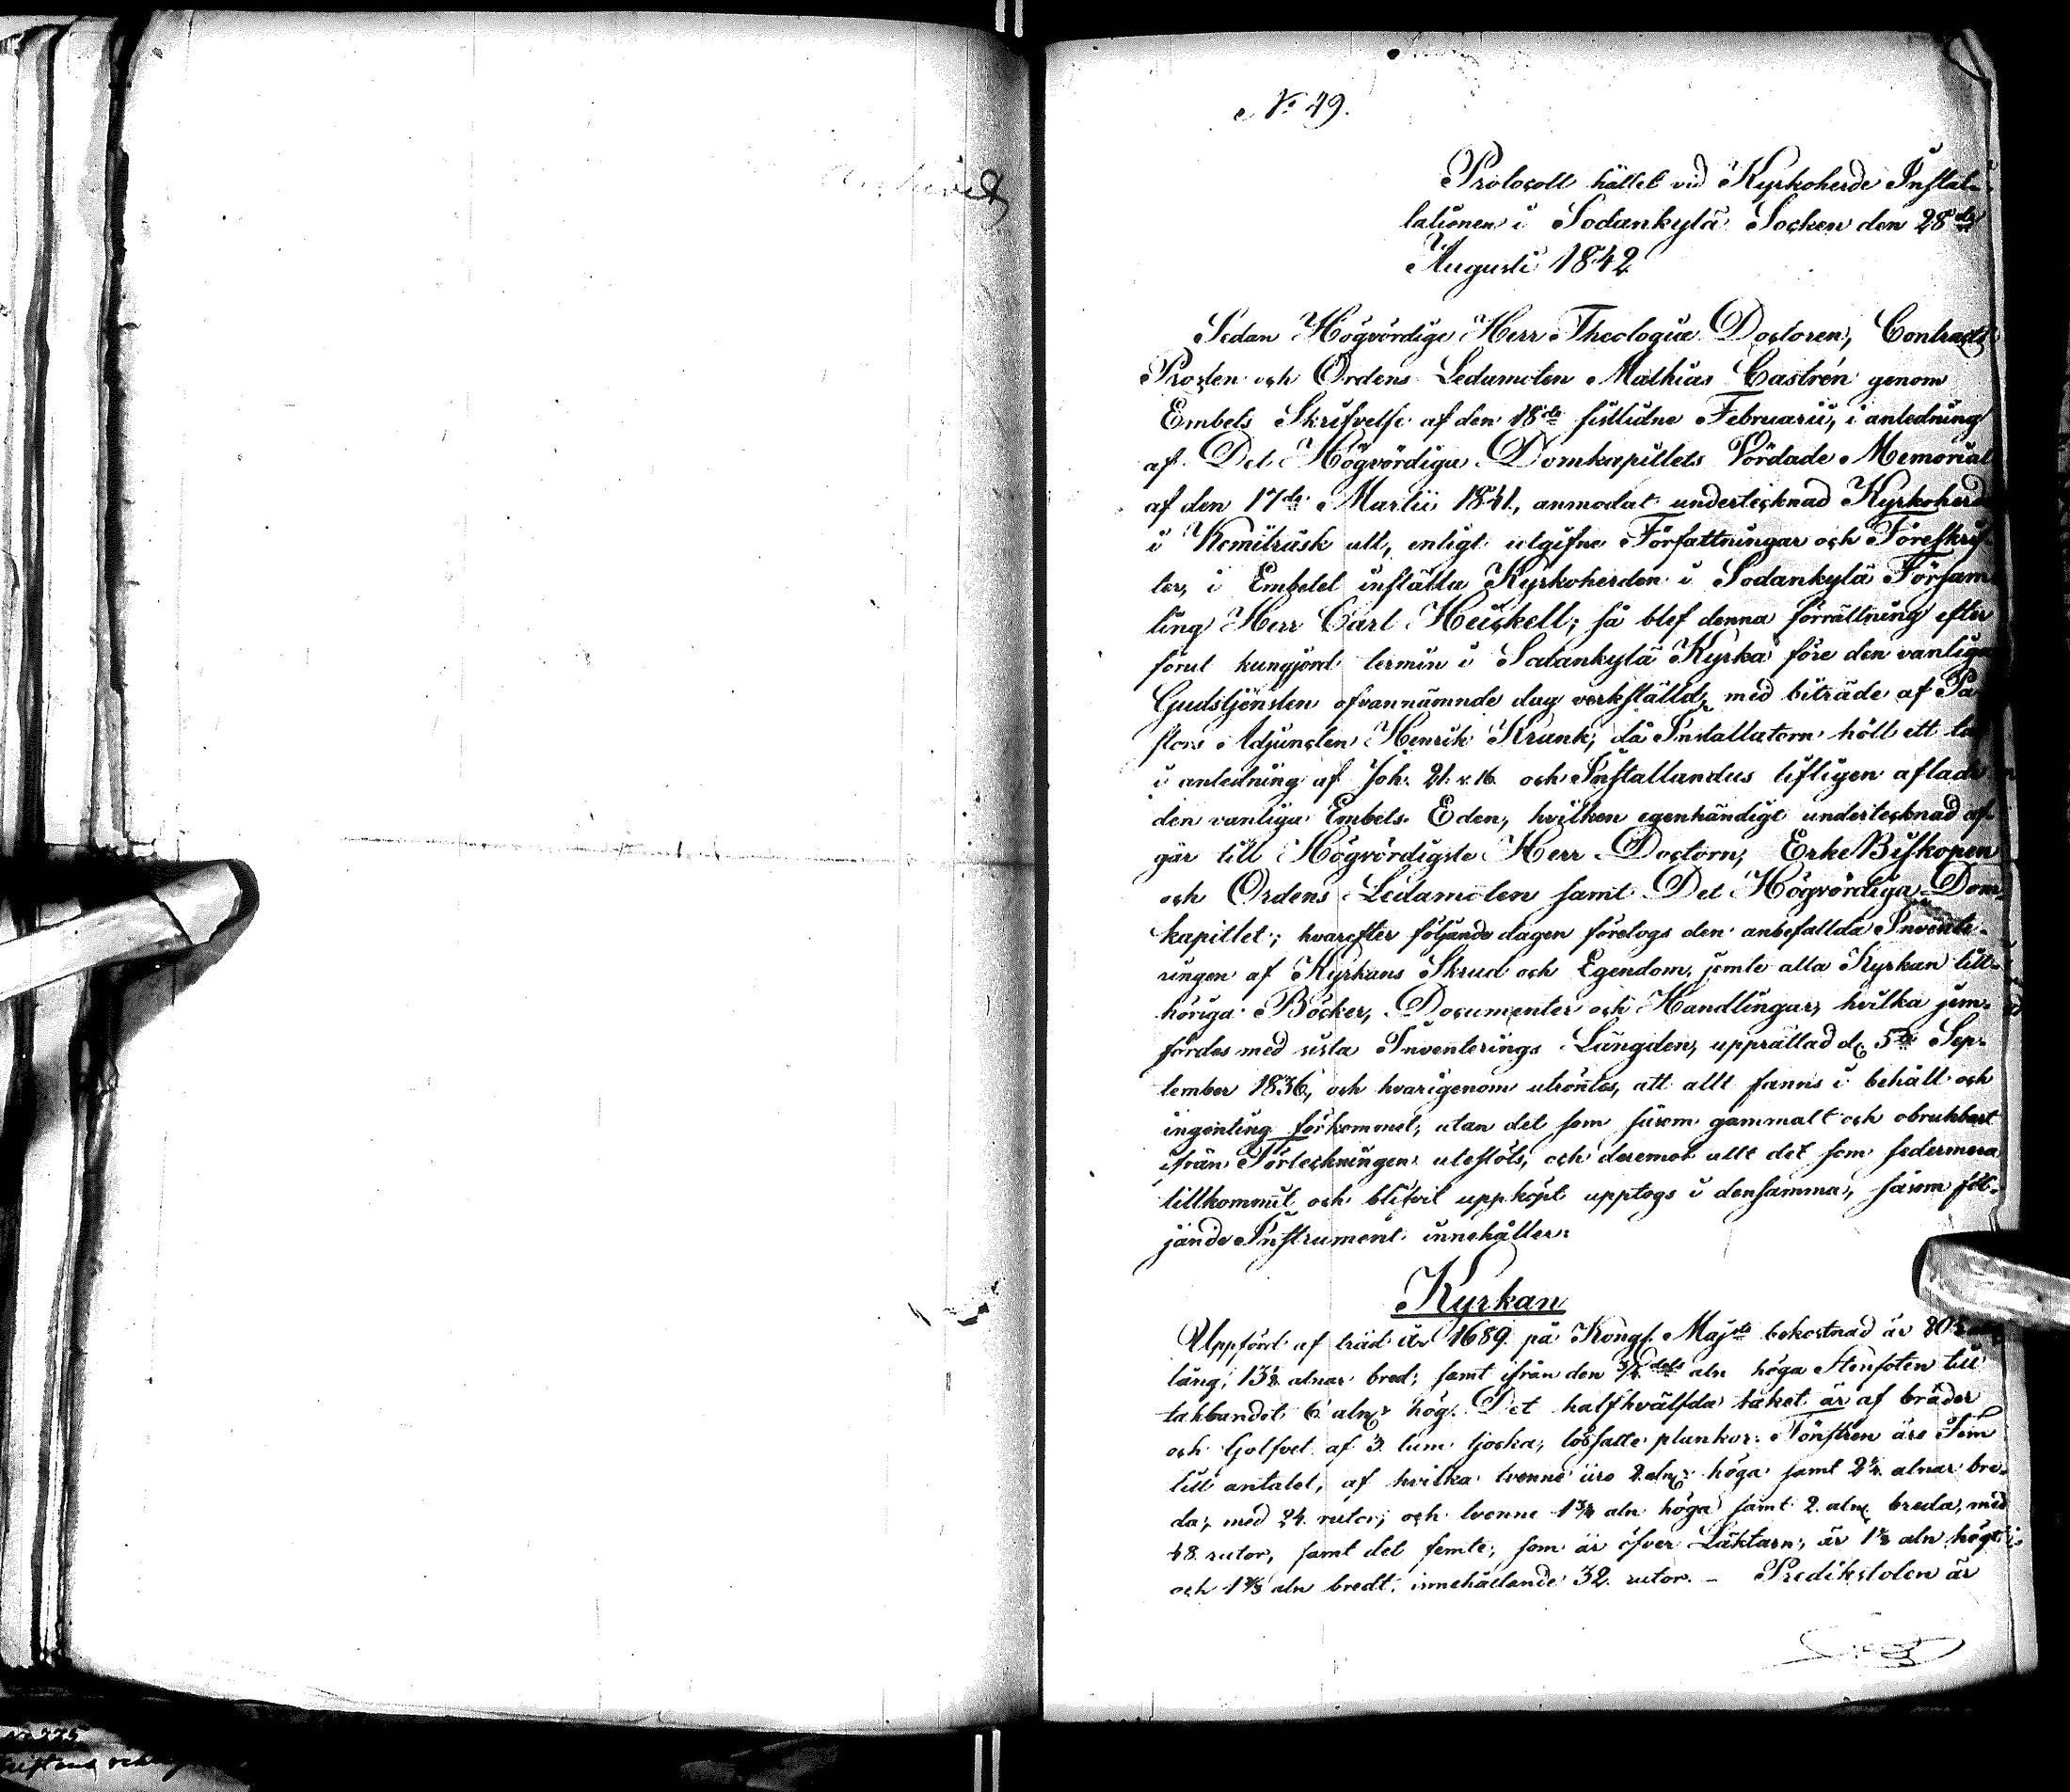 No 49.
Protocoll hållet vid Kyrkoherde Instal-
lationen i Sodankylä Socken den 28de
Augusti 1842
Sedan Högvördige Herr Theologiæ Doctoren, Contracts
Prosten och Ordens Ledamoten Mathias Castrén genom
Embets Skrifvelse af den 18de sistlidne Februarii, i anledning
af Det Högvördiga Domkapitlets Vördade Memorial
af den 17de Martii 1841, anmodat undertecknad Kyrkoherde
i Kemiträsk att, enligt utgifne Författningar och Föreskrif-
ter, i Embetet inställa Kyrkoherden i Sodankylä Försam-
ling Herr Carl Heickell; så blef denna förrättning efter
förut kungjord termin i Sodankylä Kyrka före den vanliga
Gudstjensten ofvannämnde dag verkställd, med biträde af Pa-
stors Adjuncten Henrik Krank; då Installatorn höll ett tal
i anledning af Joh. 21. v. 16. och Installandus lifligen aflade
den vanliga Embets Eden, hvilken egenhändigt undertecknad af-
går till Högvördigste Herr Doctorn, ErkeBiskopen
och Ordens Ledamoten samt Det Högvördiga Dom-
kapitlet; hvarefter följande dagen företogs den anbefallda Invente-
ringen af Kyrkans Skrud och Egendom, jemte alla Kyrkan till-
höriga Böcker, Documenter och Handlingar, hvilka jem-
fördes med sista Inventerings Längden, upprättad d. 5te Sep-
tember 1836, och hvarigenom utröntes, att allt fanns i behåll och
ingenting förkommet, utan det som såsom gammalt och obrukbart
ifrån Förteckningen uteslöts, och deremot allt det som sedermera
tillkommit och blifvit uppköpt upptogs i densamma, såsom föl-
jande Instrument innehåller:
Kyrkan
Uppförd af träd år 1689 på Kongl. Majts bekostnad är 20½
lång, 13½ alnar bred; samt ifrån den ¾dels aln höga Stenfoten till
takbandet 6 alnr hög. Det halfhvälfda taket är af bräder
och Golfvet af 3 tum tjocka, lösfalle plankor. Fönstren äro Fem
till antalet, af hvilka tvenne äro 2 alnr höga samt 2½ alnar bre-
da, med 24 rutor; och tvenne 1¾ aln höga samt 2 alnr breda, med
48 rutor, samt det femte, som är öfver Läktarn, är 1½ aln högt
och 1⅜ aln bredt, innehållande 32 rutor. – Predikstolen är